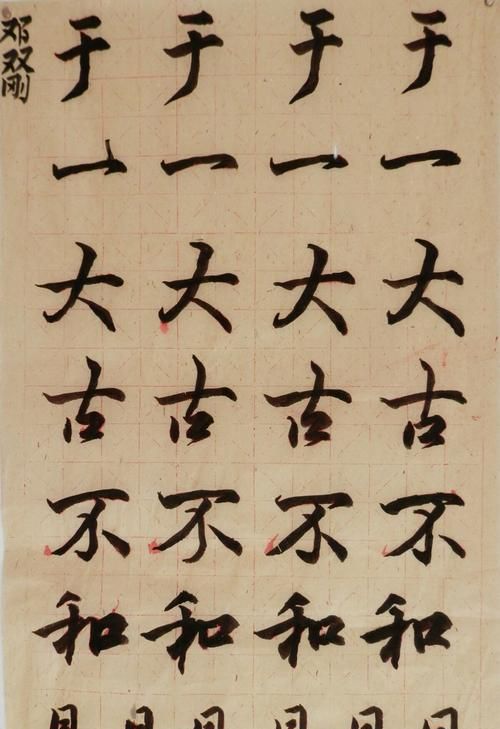 邓双刚
于于于于
一一一一
大大大大
古古古古
不不不不
和和和和